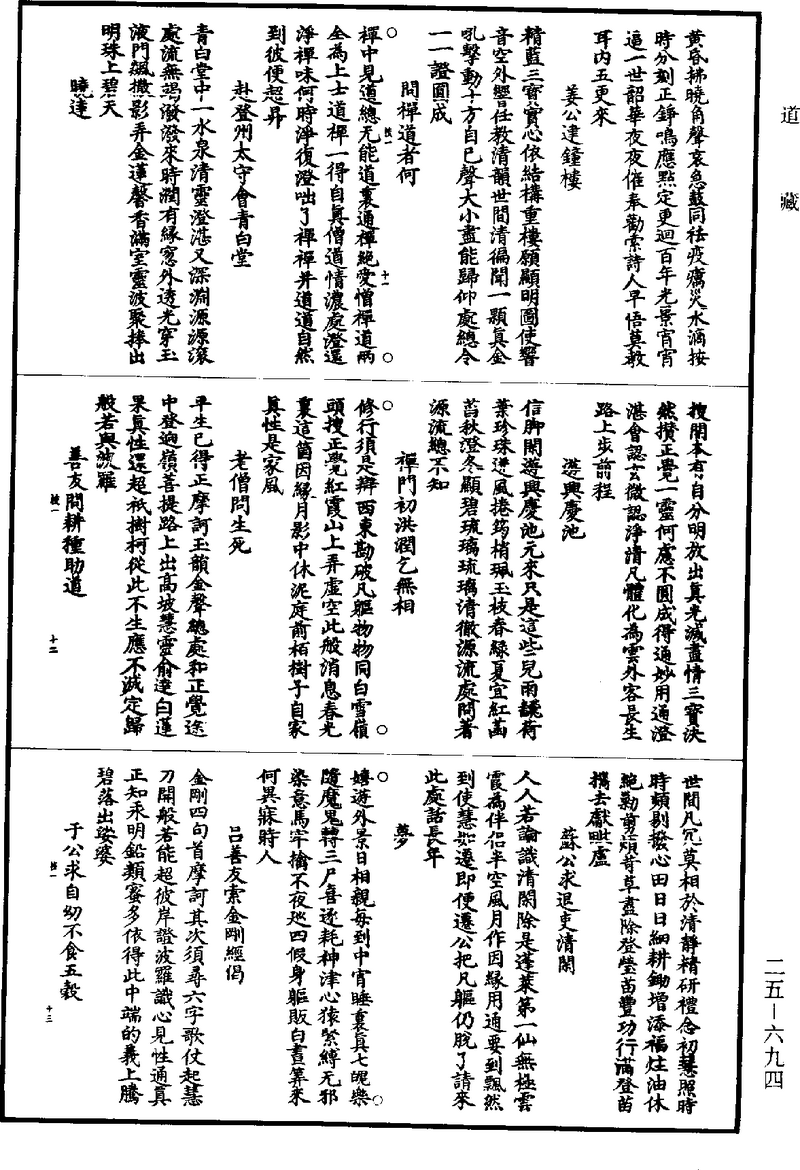 道藏
黄昏拂曉角聲哀急鼓同祛疫癘災水滴按
時分刻正錚鳴應點定更迴百年光景宵宵
逼一世韶華夜夜催奉勸索詩人早悟莫教
耳内五更來
姜公建鐘樓
精藍三寶實心依結構重樓願顯明圖使響
音空外響任教清韻世間清徧聞一顆真金
吼擊動十方自已聲大小盡能歸仰處總令
一一證圓成
問禪道者何
禪中見道總无能道裏通禪絶愛憎禪道兩
全為上士道禪一得自真僧道情濃處澄還
淨禪味何時淨復澄咄了禪禪并道道自然
到彼便超昇
赴登州太守會青白堂
青白堂中一水泉清靈澄湛又深淵源源滚
處流無竭潑潑來時潤有緣窻外透光穿玉
液門飊撒影弄金蓮馨香滿室靈波聚捧出
明珠上碧天
曉達
搜開本有自分明放出真光滅盡情三寶決
然攢正覺一靈何慮不圓成得通妙用通澄
湛會認玄微認淨清凡體化為雲外客長生
路上步前程
遊興慶池
信脚閑遊興慶池元來只是這些兒雨讒荷
葉珍珠迸風捲筠梢珮玉枝春緑夏宜紅菡
萏秋澄冬顯碧琉璃琉璃清徹源流處問著
源流總不知
禪門初洪潤乞無相
修行須是辯西東勘破凡軀物物同白雪嶺
頭搜正覺紅霞山上弄虚空此般消息春光
裏這箇因緣月影中休泥庭前栢樹子自家
真性是家風
老僧問生死
平生已得正摩訶玉韻金聲總處和正覺途
中登逈嶺菩提路上出高坡慧靈俞達白蓮
果真性還超祇樹柯從此不生應不滅定歸
般若與波羅
善友問耕種助道
世間凡冗莫相於清静精研禮念初慧照時
時頻剔撥心田日日細耕鋤增添福炷油休
絶勤剪煩苛草盡除登瑩苗豐功行滿登苗
攜去獻毗盧
蘇公求退吏清閑
人人若論識清閑除是蓬萊第一仙無極雲
霞為伴侣半空風月作因緣用通要到飄然
到使慧如遷即便遷公把凡軀仍脫了請來
此處話長年
夢
嬉遊外景日相親每到中宵睡裏真七魄樂
隨魔鬼轉三尸喜逐耗神津心猿緊縛无邪
染意馬牢擒不夜巡四假身軀販白晝算來
何異寐時人
吕善友索金剛經偈
金剛四句首摩訶其次須尋六字歌仗起慧
刀開般若能超彼岸證波羅識心見性通真
正知汞明鉛類蜜多依得此中端的義上騰
碧落出娑婆
于公求自幼不食五穀
二五－六九四